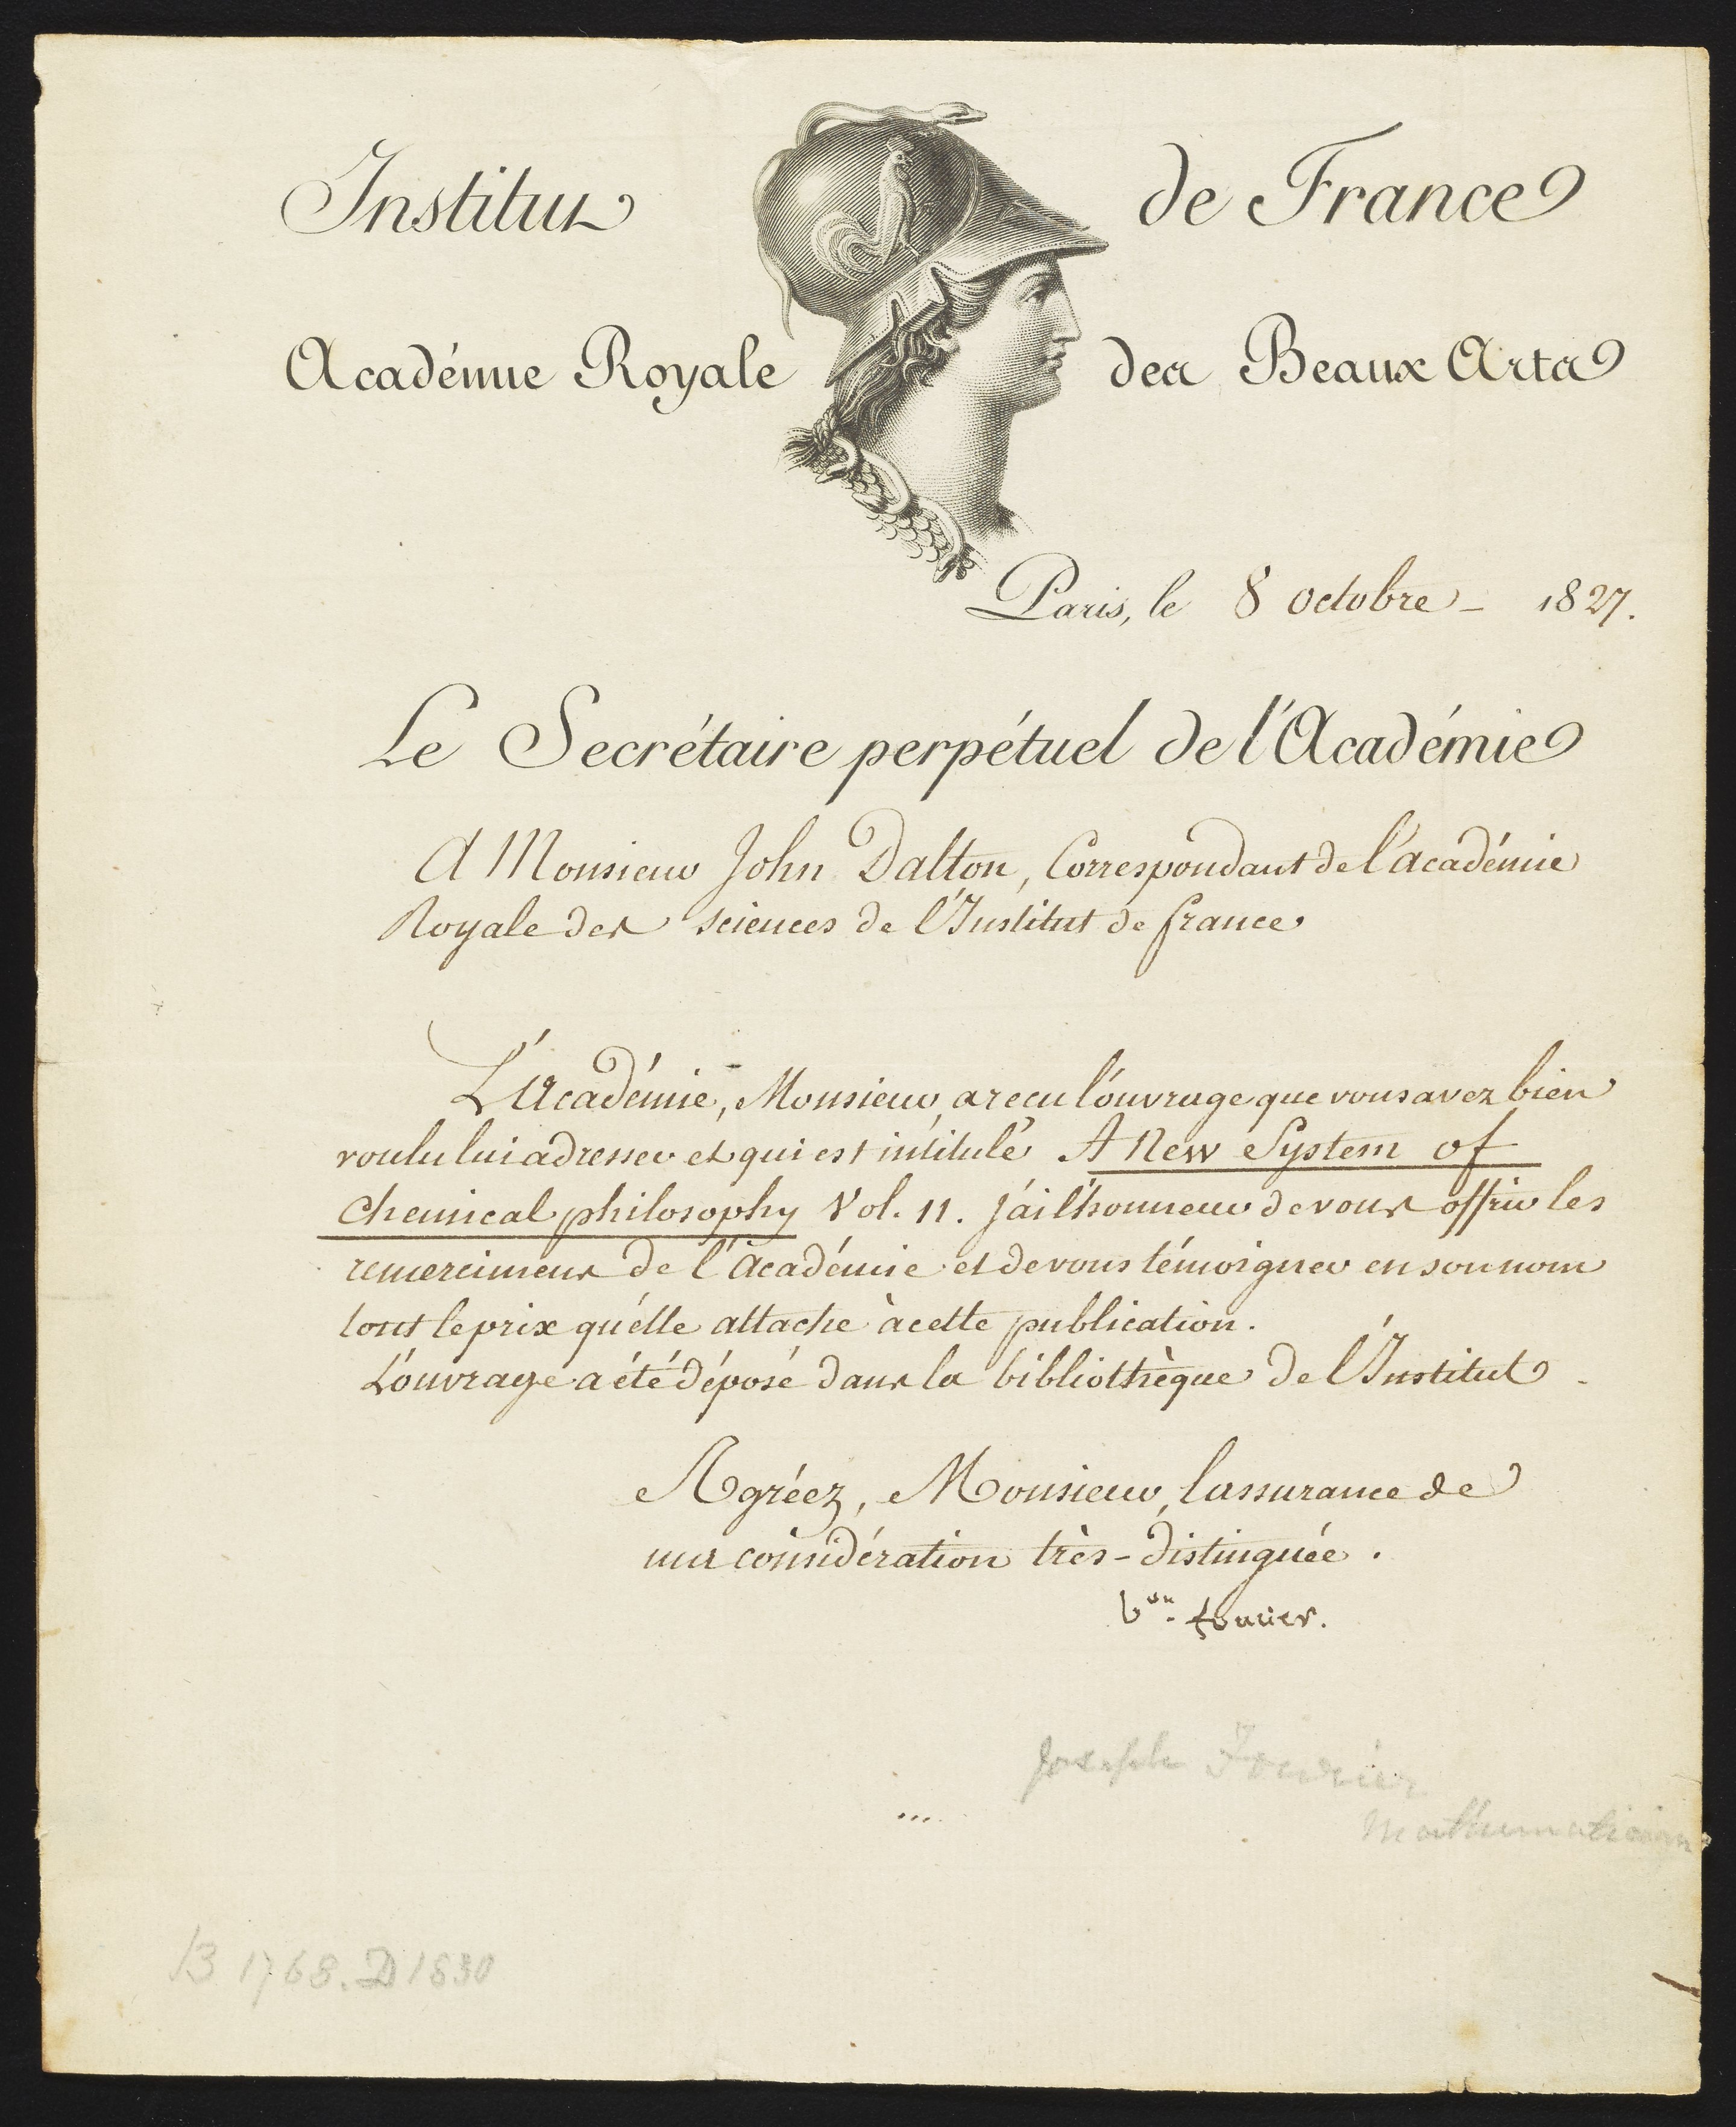 Institut de France
Académie Royale des Beaux Arts
Paris, le 8 octobre - 1827.
Le Secrétaire perpétuel de l'Académie
A Monsieur John Dalton, Correspondant de l'académie
Royale des sciences de l'Institut de france
L'Académie, Monsieur, a recu l'ouvrage que vous avez bien
voulu lui adresser et qui est intitulé A New System of
Chemical philosophy Vol. 11. j'ai l'honneur de vous offrir les
remercimens de l'académie et de vous témoigner en son nom
tout le prix qu'elle attache à cette publication.
L'ouvrage a été déposé dans la bibliothèque de l'Institut.
Agréez, Monsieur, l'assurance de
ma considération très-distinguée.
bon. fourier.
Joseph Fourier
Mathematician
B 1768. D 1830